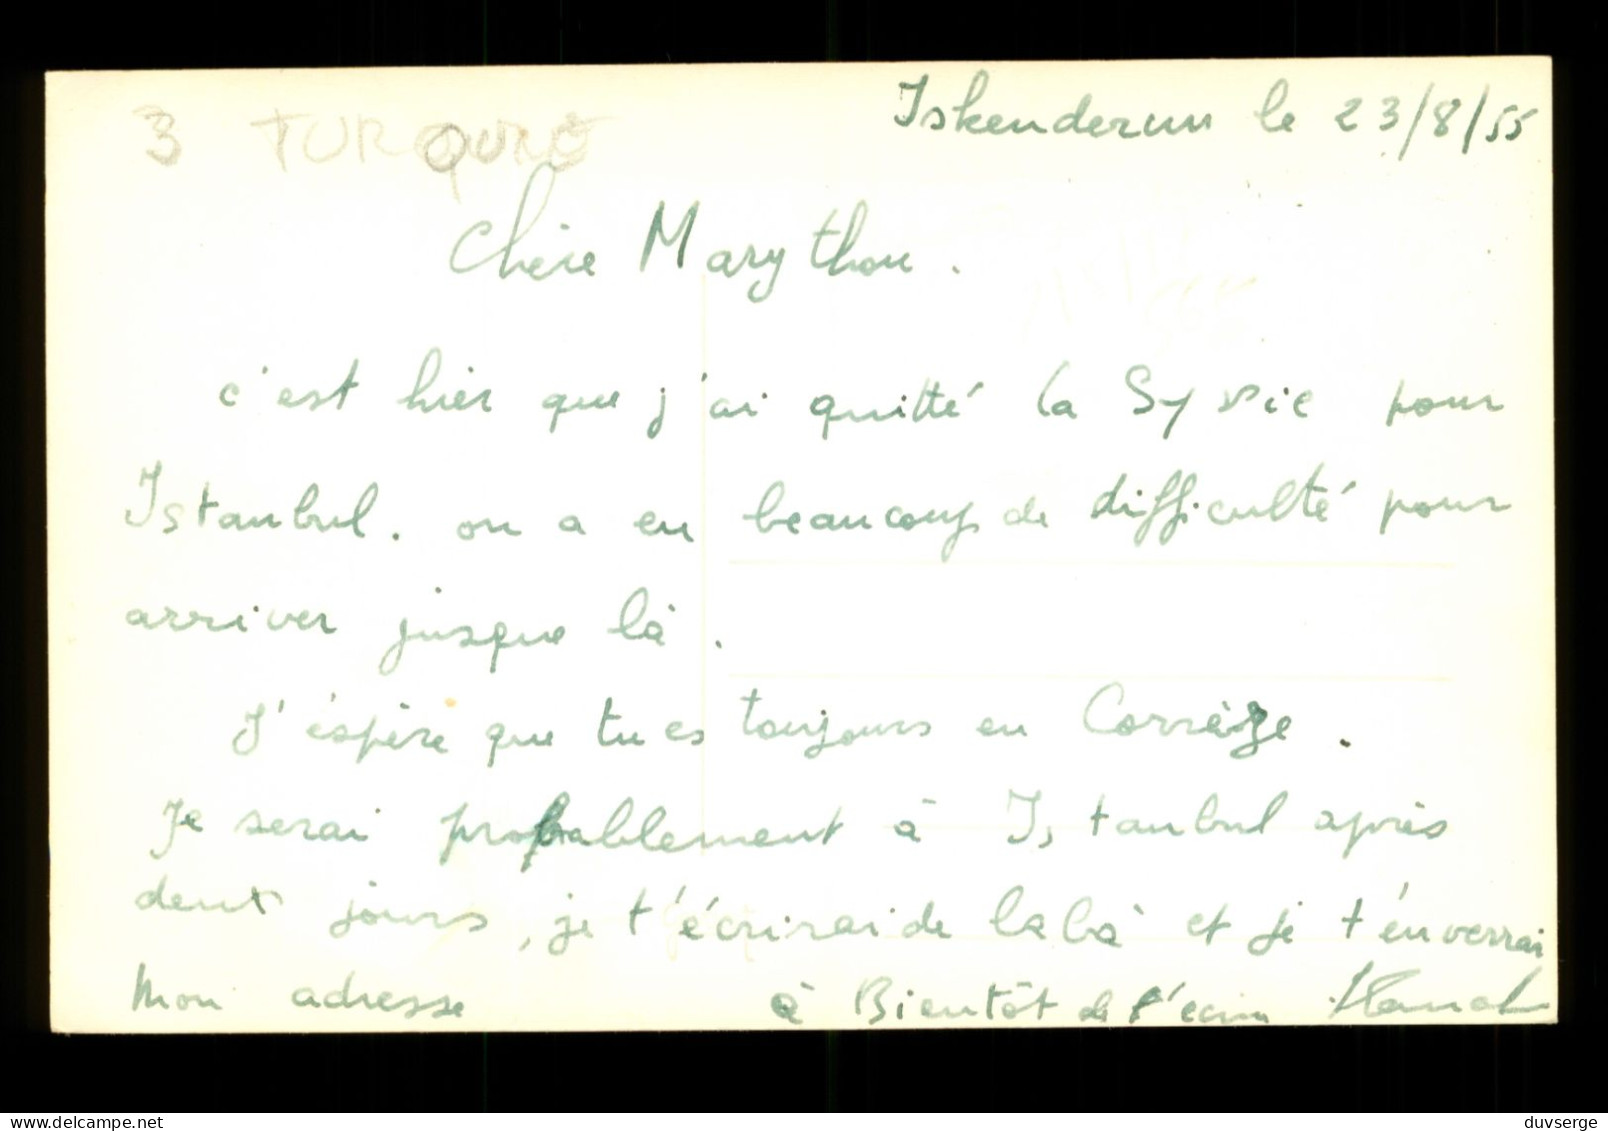 Iskenderun le 23/8/55
3 TURQUIE
Chère Marythou.
c'est hier que j'ai quitté la Syrie pour
Istanbul. on a eu beaucoup de difficulté pour
arriver jusque là.
J'éspère que tu es toujours en Corrèze.
Je serai probablement à Istanbul après
deux jours, je t'écrirai de labà et je t'énverrai
mon adresse
à Bientôt de t'écrire
duvserge